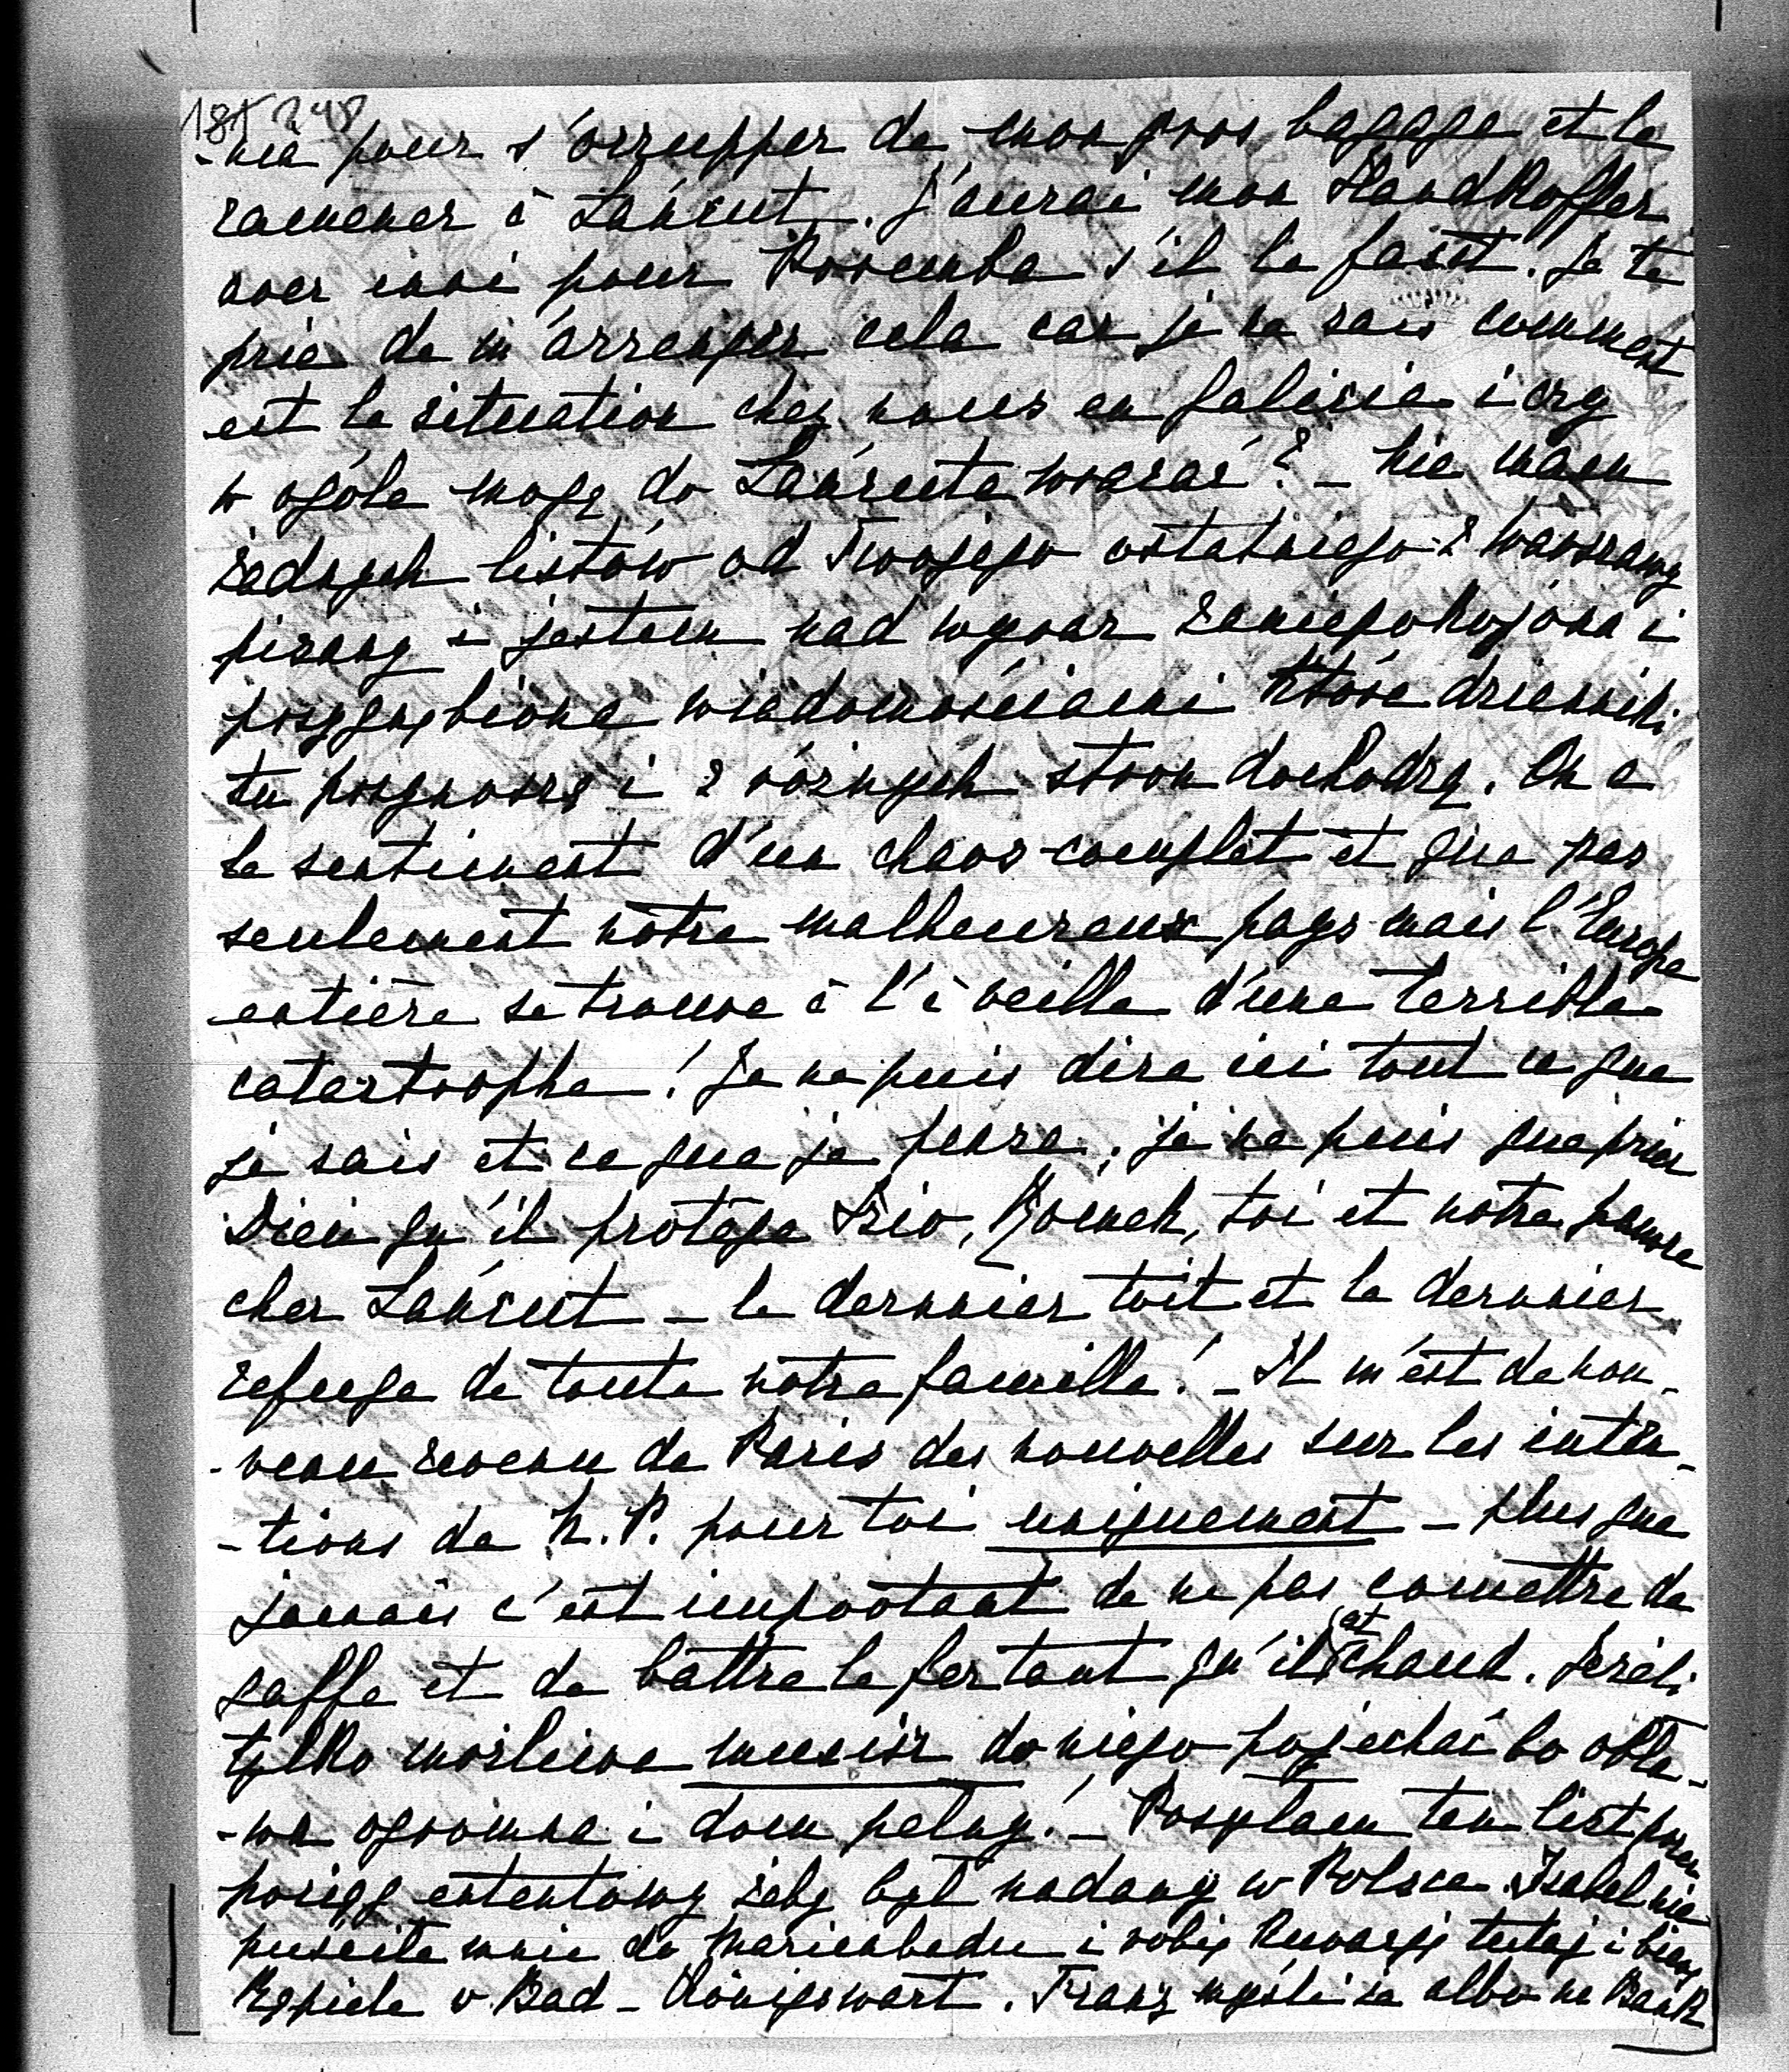 248
-nia pour s'occupper de mon gros bagage et le
ramener à Łańcut. J'aurai mon Handkoffer
avec moi pour Poremba s'il le faut. Je te
prie de m'arrenger cela car je ne sais comment
est la situation chez nous en Galicie i czy
w ogóle mogę do Łańcuta wracać? – Nie mam
żadnych listów od Twojego ostatniego z Warszawy
pisany i jestem nad wyraz zaniepokojona i
przygnębiona wiadomościami które dzienniki
tu przynoszą i z różnych stron dochodzą. On a
le sentiment d'un chaos complet et que pas
seulement nôtre malheureux pays mais l'Europe
entière se trouve à l'à veille d'une terrible
catastrophe! Je ne puis dire ici tout ce que
je sais et ce que je pense, je ne puis que prier
Dieu qu'il protège Józio, Romek, toi et notre pauvre
cher Łańcut – le dernier toit et le dernier
refuge de toute nôtre famille! – Il m'est de nou-
-veau revenu de Paris des nouvelles sur les inten-
-tions de N. P. pour toi uniquement – plus que
jamais c'est important de ne pas comettre de
gaffe et de battre le fer tant qu'il est chaud. Jeżeli
tylko możliwe musisz do niego pojechać bo obła-
-wa ogromna i dom pełny! – Posyłam ten list przez
posięg ententowy żeby był nadany w Polsce. Isabel nie
puściła mnie do Marienbadu i robię kuracyę tutaj i biorę
kąpiele v Bad-Königswart. Franz myśli że albo na Bank